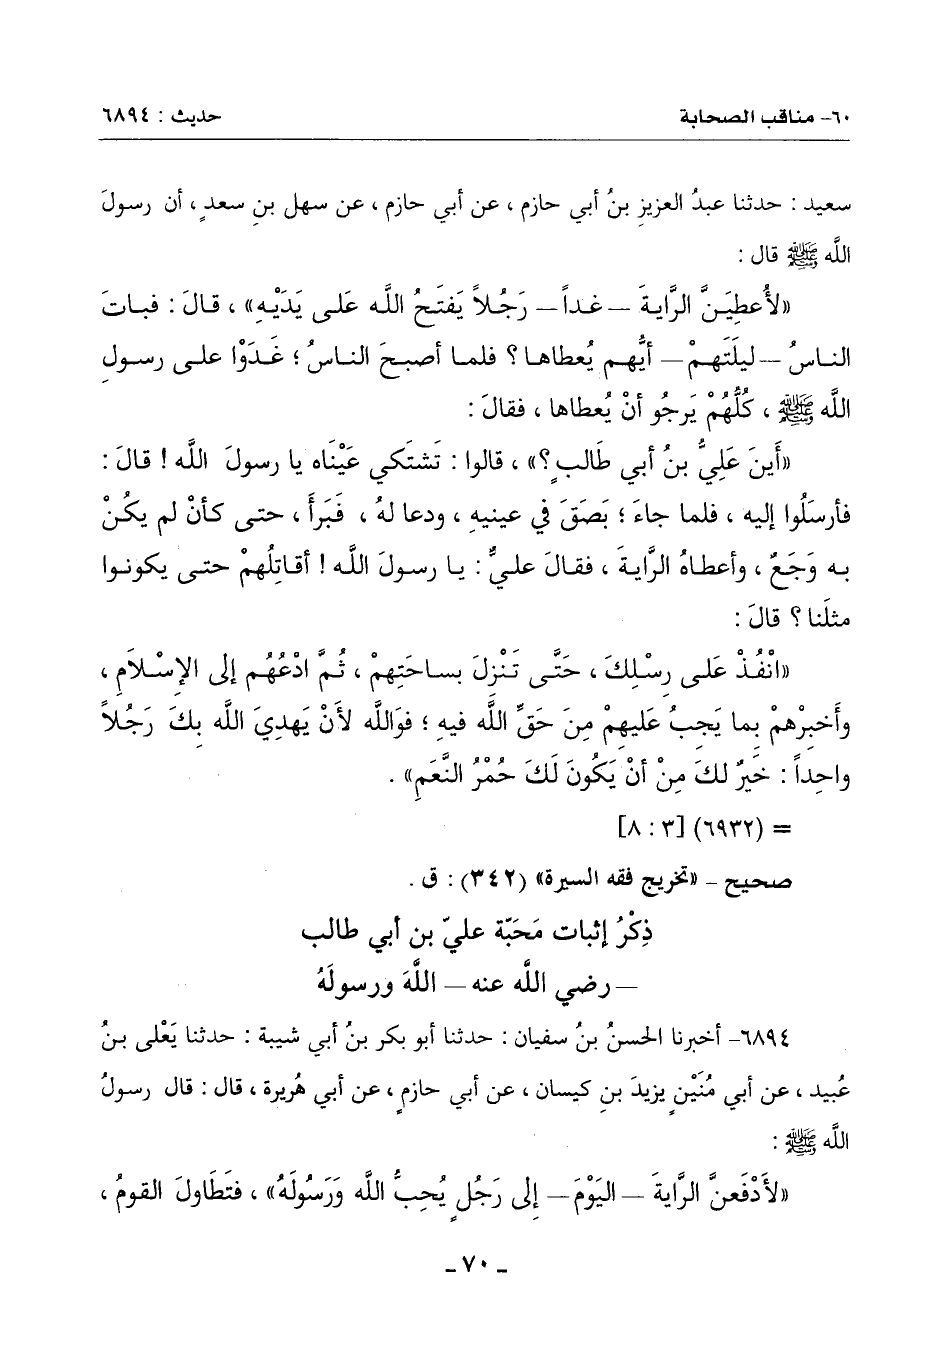 ٦٠- مناقب الصحابة حديث : ٦٨٩٤
سعيد : حدثنا عبدُ العزيزِ بنُ أبي حازم ، عن أبي حازم ، عن سهل بنِ سعدٍ ، أن رسولَ
اللَّه ﷺ قال :
«لأُعطِيَنَّ الرَّايةَ – غداً – رَجُلاً يَفتَحُ اللَّه عَلى يَدَيْهِ» ، قالَ : فباتَ
الناسُ – ليلَتَهمْ – أيُّهم يُعطاها ؟ فلما أصبحَ الناسُ ؛ غَدَوْا على رسولِ
اللَّه ﷺ ، كُلُّهُمْ يَرجُو أنْ يُعطاها ، فقالَ :
«أَينَ عَلِيُّ بنُ أبي طَالبٍ ؟» ، قالوا : تَشتَكي عَيْنَاه يا رسولَ اللَّه ! قالَ :
فأرسَلُوا إليه ، فلما جاءَ ؛ بَصَقَ في عينيهِ ، ودعا لهُ ، فَبَرأَ ، حتى كأنْ لم يكُنْ
به وَجَعٌ ، وأعطاهُ الرَّايةَ ، فقالَ عليٌّ : يا رسولَ اللَّه ! أقاتِلُهمْ حتى يكونوا
مثلَنا ؟ قالَ :
«انْفُذْ عَلى رِسْلِكَ ، حَتَّى تَنْزِلَ بساحَتِهمْ ، ثُمَّ ادْعُهُم إلى الإسْلامِ ،
وأَخبِرْهمْ بما يَجبُ عَليهِمْ مِنَ حَقِّ اللَّه فيهِ ؛ فوَاللَّه لأنْ يَهدِيَ اللَّه بكَ رَجُلاً
واحِداً : خَيرٌ لكَ مِنْ أنْ يَكُونَ لَكَ حُمْرُ النَّعَمِ» .
= (٦٩٣٢) [٣ : ٨]
صحيح – «تخريج فقه السيرة» (٣٤٢) : ق .
ذِكْرُ إثبات مَحَبّة عليّ بن أبي طالب
– رضي اللَّه عنه – اللَّهَ ورسولَهُ
٦٨٩٤- أخبرنا الحسنُ بنُ سفيان : حدثنا أبو بكر بنُ أبي شيبة : حدثنا يَعْلى بنُ
عُبيد ، عن أبي مُنَيْنٍ يزيدَ بنِ كيسان ، عن أبي حازمٍ ، عن أبي هُريرة ، قال : قال رسولُ
اللَّه ﷺ :
«لأَدْفَعنَّ الرَّايةَ – اليَوْمَ – إلى رَجُلٍ يُحِبُّ اللَّه وَرَسُولَهُ» ، فتَطَاولَ القومُ ،
- ٧٠ -